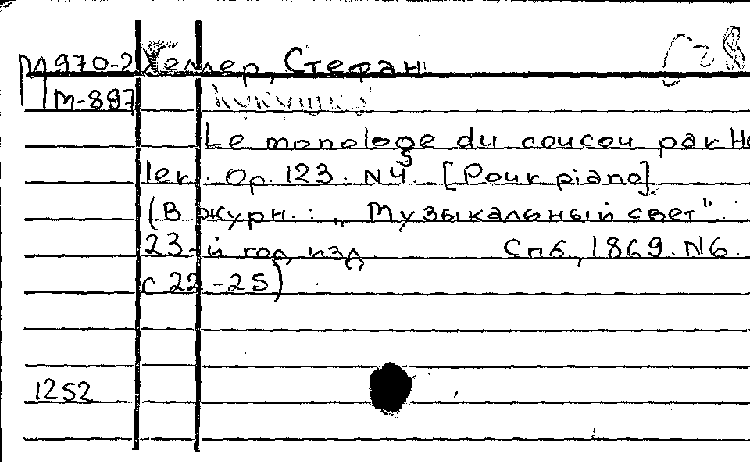 М970-2 Хеллер, Стефан
М-897 Кукушка
Le monologe du coucou par He
ler. Op. 123. N4. [Pour piano]
(В журн.: „Музыкальный свет".
23-й год изд. Спб., 1869. N6.
с 22-25)
1252